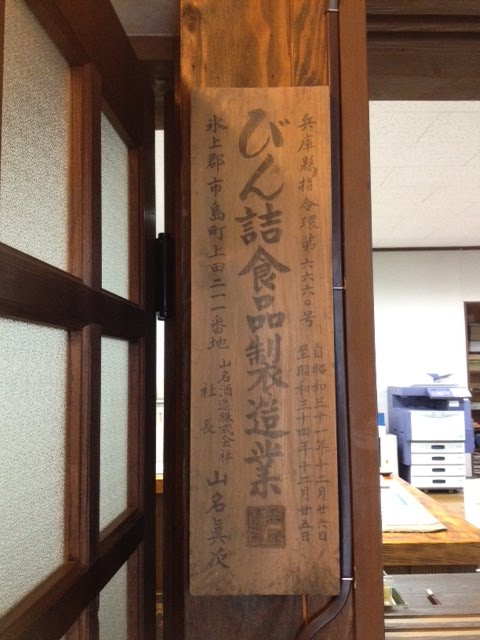 兵庫縣指令環第六六六〇号
自昭和三十一年十二月廿六日
至昭和三十四年十二月廿五日
びん詰食品製造業
氷上郡市島町上田二一一番地
山名酒造株式会社
社長
山名眞次